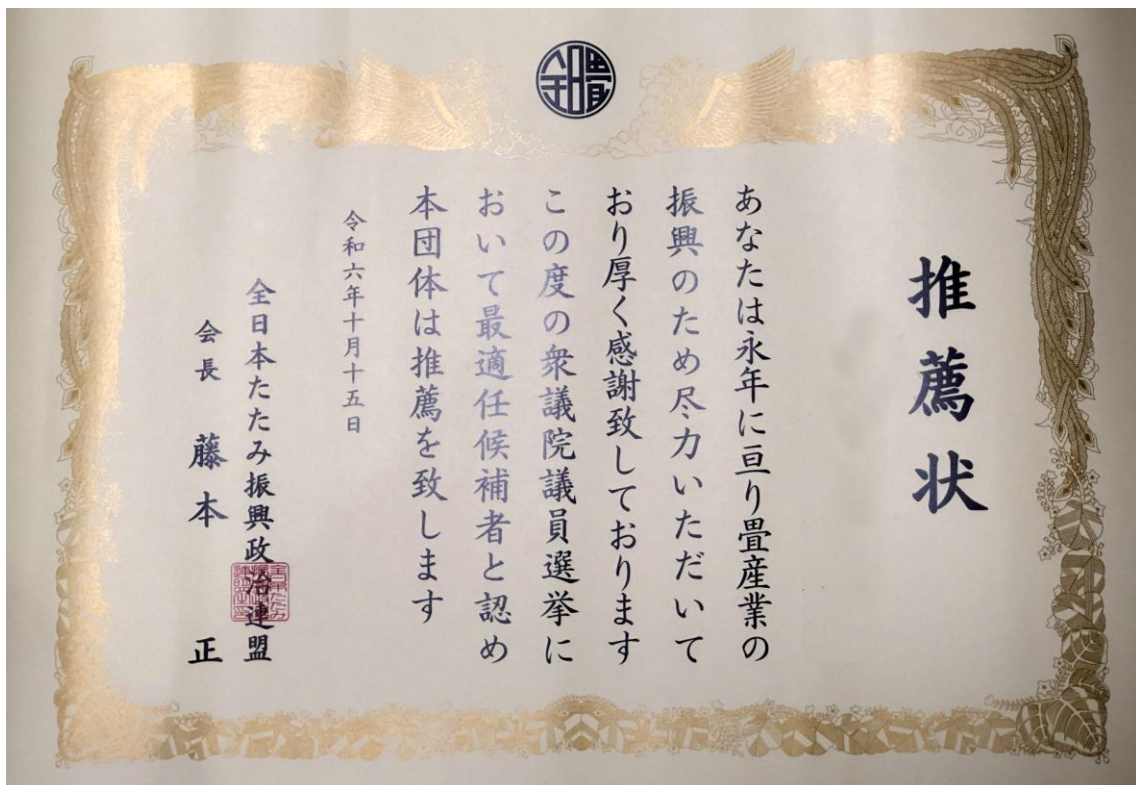 全日畳
推薦状
あなたは永年に亘り畳産業の
振興のため尽力いただいて
おり厚く感謝致しております
この度の衆議院議員選挙に
おいて最適任候補者と認め
本団体は推薦を致します
令和六年十月十五日
全日本たたみ振興政治連盟
会長 藤本 正